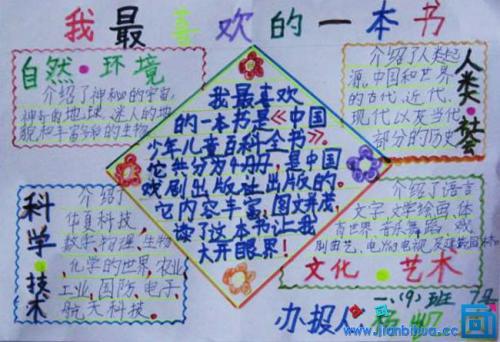 我最喜欢的一本书
自然·环境
介绍了神秘的宇宙,
神奇的地球、迷人的地
貌和丰富多彩的生物。
介绍了人类起
源、中国和世界
的古代、近代、
现代以及当代
部分的历史
人类·社会
我最喜欢
的一本书是《中国
少年儿童百科全书》。
它共分为4册,是中国
戏剧出版社出版的。
它内容丰富,图文并茂,
读了这本书让我
大开眼界!
科学·技术
介绍了
华夏科技、
数学、物理、生物
、化学的世界、农业、
工业、国防、电子、
航天科技。
介绍了语言
文字、文学绘画、体
育世界、音乐舞蹈、戏
剧曲艺、电影电视
文化·艺术
办报人
www.jianbihua.cc